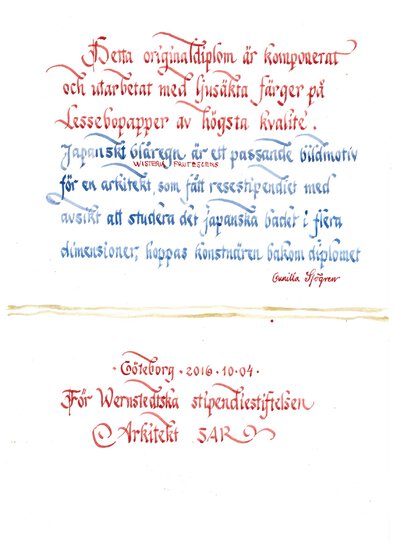 Detta originaldiplom är komponerat
och utarbetat med ljusäkta färger på
Lessebopapper av högsta kvalité.
Japanskt blåregn är ett passande bildmotiv
WISTERIA FRUTESCENS
för en arkitekt, som fått resestipendiet med
avsikt att studera det japanska badet i flera
dimensioner, hoppas konstnären bakom diplomet
Gunilla Sjögren
·Göteborg·2016·10·04·
För Wernstedtska stipendiestiftelsen
Arkitekt SAR